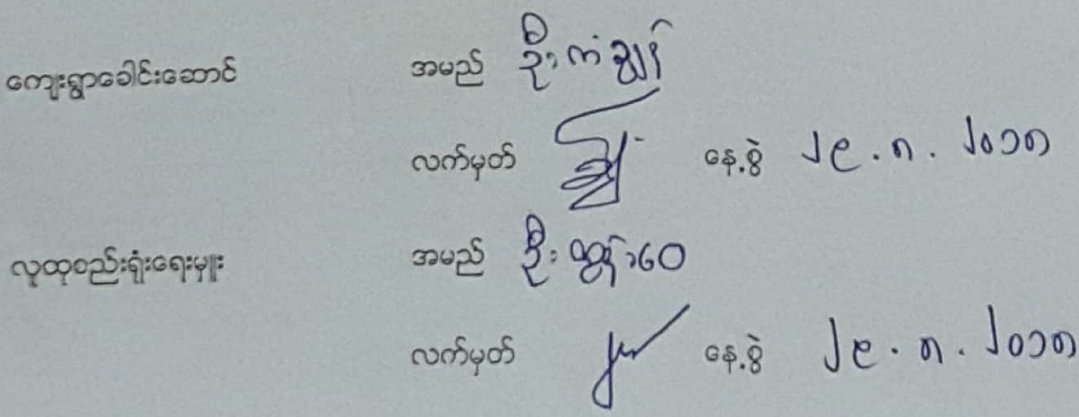 ကျေးရွာခေါင်းဆောင် အမည် ဦး ကံချွန်
လက်မှတ် နေ့စွဲ ၂၉.၈.၂၀၁၈
လူထုစည်းရုံးရေးမှူး အမည် ဦး
လက်မှတ် နေ့စွဲ ၂၉.၈.၂၀၁၈